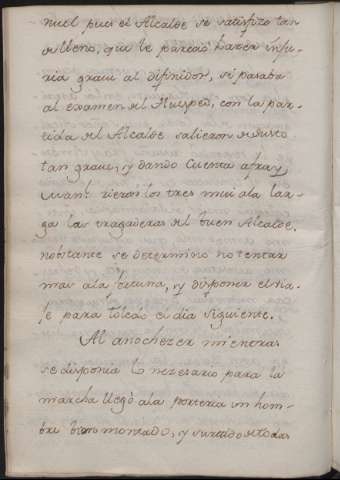 nuel pues el Alcalde se satisfizo tan
de lleno, que le pareció hacer inju-
ria grave al difinidor, si pasaba
al examen del Huesped, con la par-
tida del Alcalde salieron de susto
tan grave, y dando cuenta a fray
Juan rieron los tres mui ala lar-
ga las tragaderas del buen Alcalde,
nobstante se determinó no tentar
mas ala fortuna, y disponer el via-
je para Toledo el dia siguiente.
Al anochezer mientras
se disponia lo nezesario para la
marcha llegó ala porteria un hom-
bre bien montado, y surtido de todas